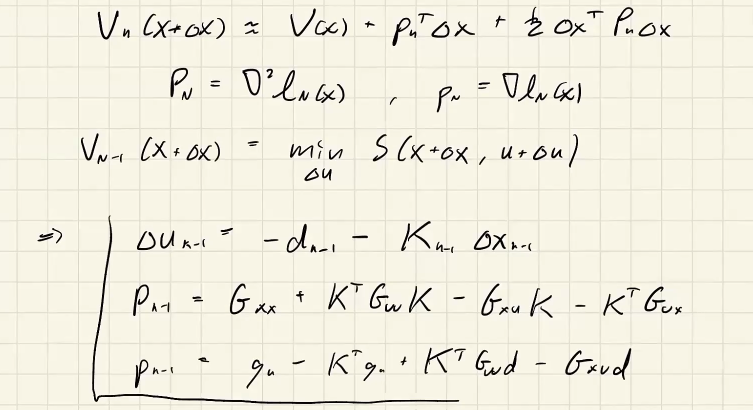 Vₙ(x+Δx) ≈ V(x) + pₙᵀΔx + ½ Δxᵀ PₙΔx
P_N = ∇²l_N(x) , p_N = ∇l_N(x)
V_{N-1}(x+Δx) = min_{Δu} S(x+Δx, u+Δu)
⇒ Δu_{n-1} = -d_{n-1} - K_{n-1} Δx_{n-1}
P_{n-1} = G_{xx} + KᵀG_{uu}K - G_{xu}K - KᵀG_{ux}
p_{n-1} = g_n - Kᵀg_n + KᵀG_{uu}d - G_{xu}d